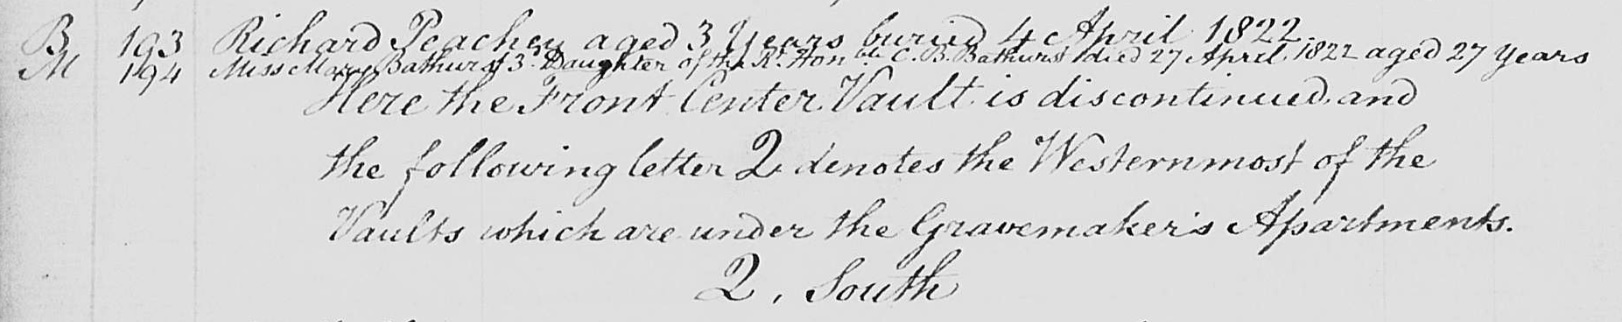 B 193 Richard Peachey aged 3 Years buried 4 April 1822.
M 194 Miss Mary Bathurst 3d Daughter of the Rt. Honble C. B. Bathurst died 27 April 1822 aged 27 years
Here the Front Center Vault is discontinued and
the following letter Q denotes the Westernmost of the
Vaults which are under the Gravemaker's Apartments.
Q. South